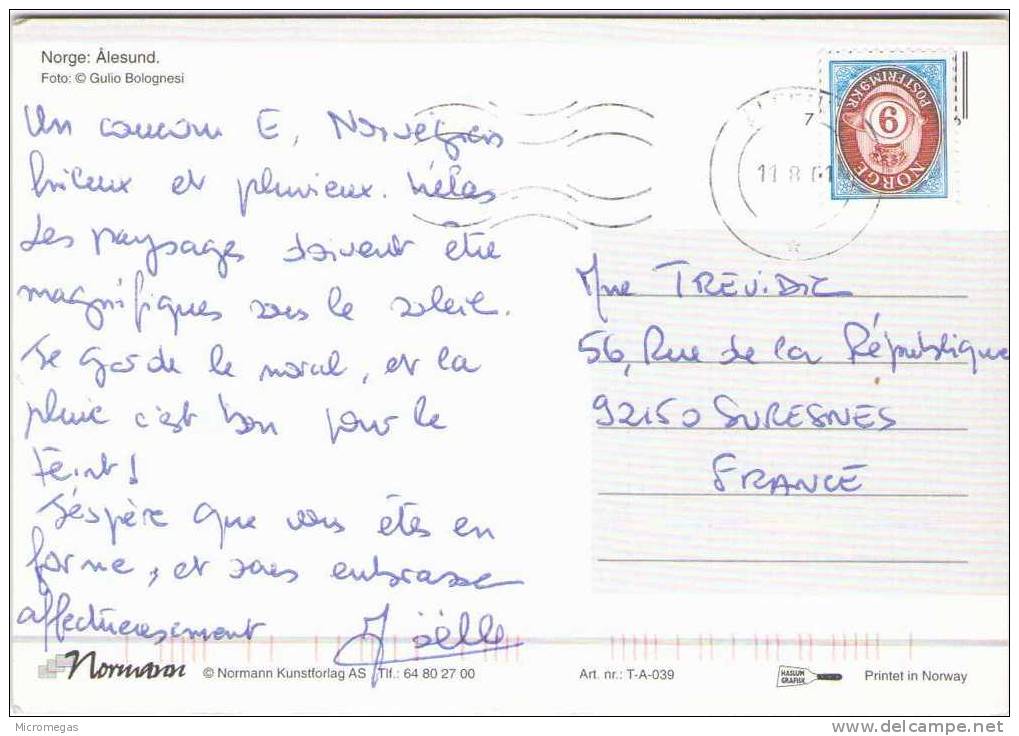 Norge: Ålesund.
Foto: © Gulio Bolognesi
Un coucou
frileux et pluvieux. Hélas
Les paysages doivent être
magnifiques sous le soleil.
Je garde le moral, et la
pluie c'est bon pour le
teint!
J'éspère que vous êtes en
forme, et vous embrasse
affectueusement
POSTFRIM 9 KR
9
NORGE
7
11 8 01
Mme TREVIDIC
56, Rue de la République
92150 SURESNES
FRANCE
Normann © Normann Kunstforlag AS Tlf.: 64 80 27 00 Art. nr.: T-A-039 HASLUM GRAFISK Printet in Norway
Micromegas www.delcampe.net